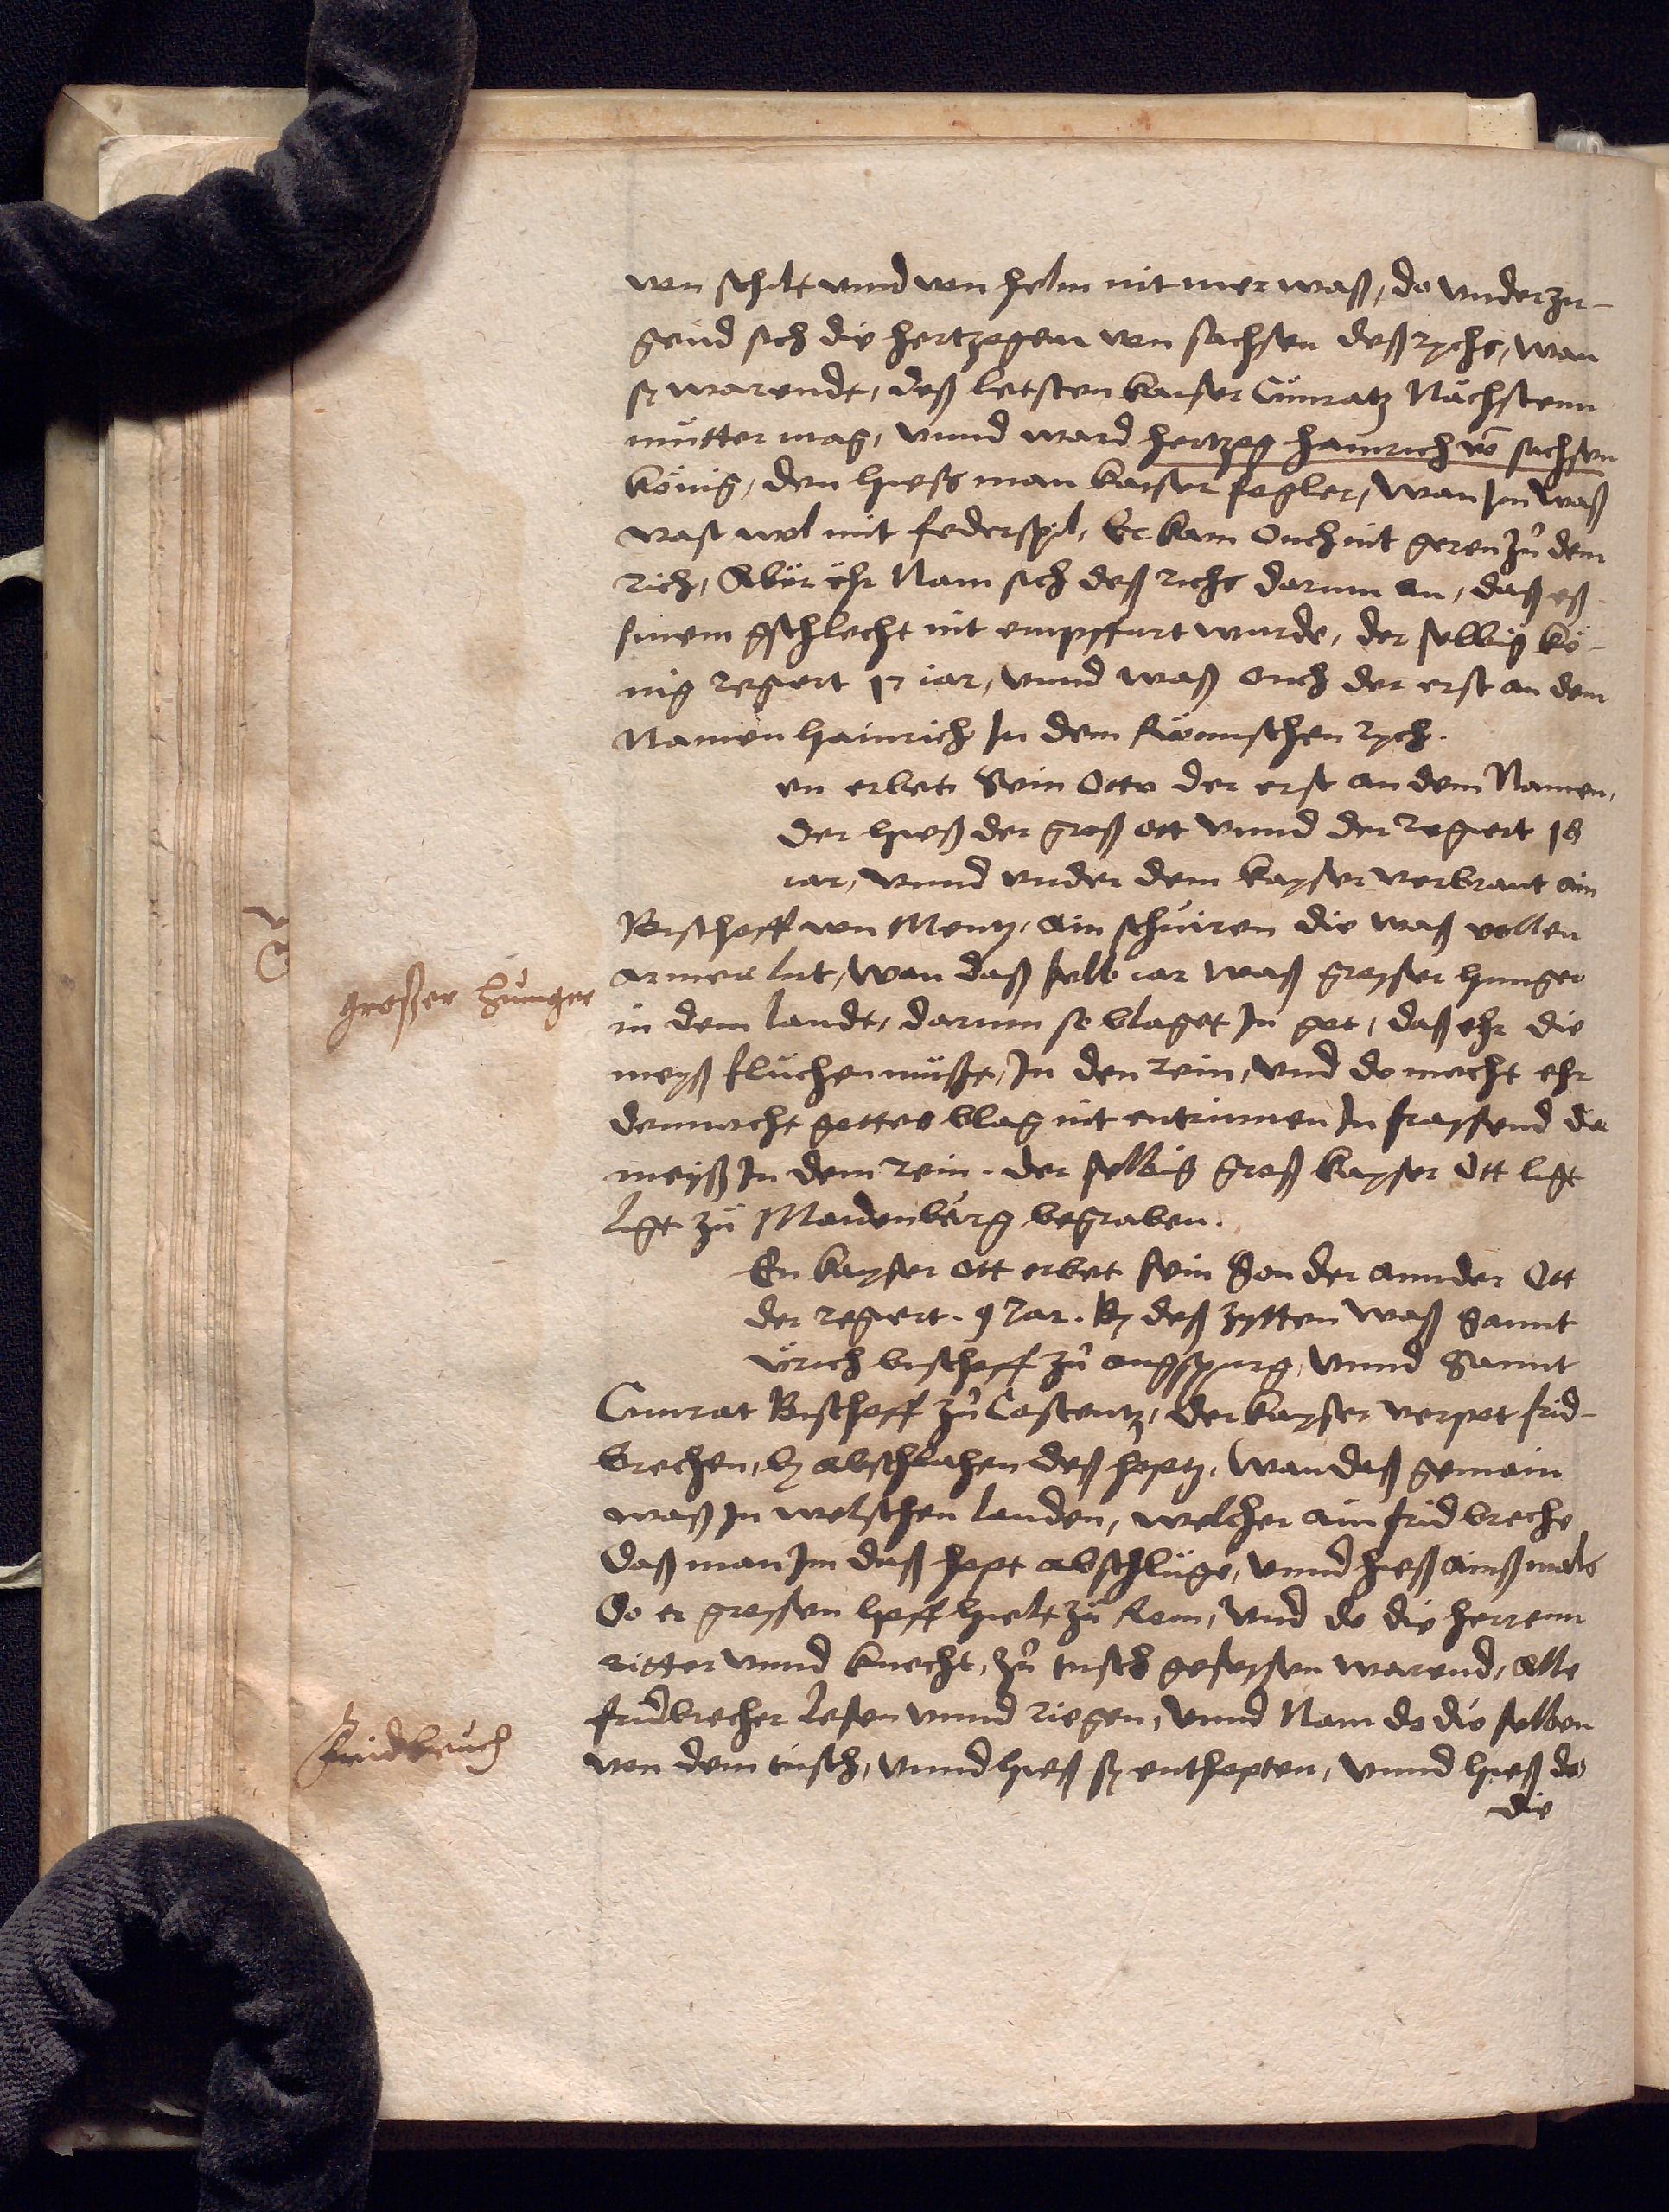 von schilt vnnd von helm nit mer waß, do vnderzu-
gend sich die hertzogen von sachsen deß rychs, wan
sy warendt, deß letsten kaiser Cünratz Nächstenn
mütter mag, vnnd ward hertzog hainrich vō sachsen
könig, den hiess man kaiser fogler, wan jm waß
vast wol mit federspil, Er kam ouch nit geren zů dem
rich, Aber ehr Nam sich deß richs darum an, daß eß
sinem gschlecht nit empffürt wurde, der selbig kö-
nig regiert 17 iar, vnnd waß ouch der erst an dem
Namen hainrich In dem Römischen rych.
en erbet Sein Otto der erst an dem Namen,
der hieß der groß ott vnnd der regiert 18
iar, vnnd vnder dem kayser verbrant ain
Bischoff von Mentz, ain schüiren die waß vollen
armer lüt, wan daß selb iar waß grosser hunger
in dem landt, darum so blaget In got, daß ehr die
meyß fluchen müßt, In den rein, vnd do mocht ehr
dennocht gottes blag nit entrinnen In frassend die
meyß In dem rein. der selbig groß kayser Ott ligt
ligt zü Maidenburg begraben.
En kayser ott erbet sein Son der annder Ott
der regiert. 9 Jar. By deß zytten waß Sannt
Ůrich bischoff zů augspurg, vnnd Sannt
Cunrat Bischoff zů Costentz, der kayser verpot frid-
brechen, by abschlahen deß hoptz, wan daß gemain
waß In welschen landen, welcher ain frid breche
daß man Im daß hopt abschlüge, vnnd hieß ainßmals
Do er grossen hoff hielt zů Rom, vnd do die herrenn
ritter vnnd knecht, zů tisch gesessen warend, alle
fridbrecher lesen vnnd riegen, vnnd Nam do die selben
von dem tisch, vnnd hieß sy enthopten, vnnd hieß do
die
großer hunger
Fridbruch